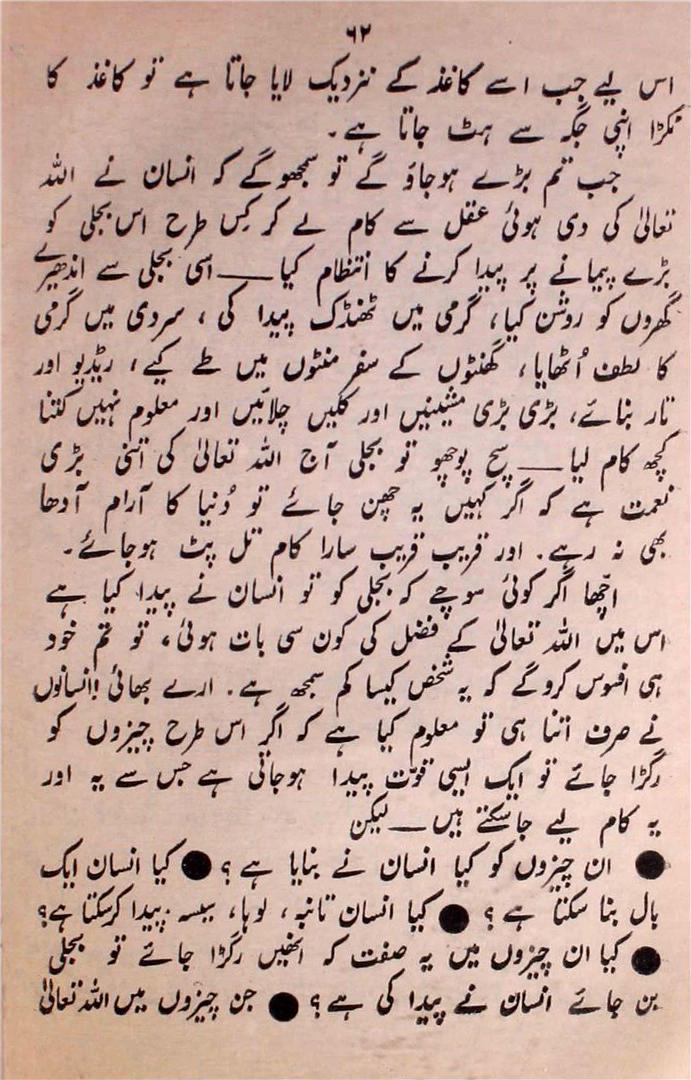 ۶۲
اس لیے جب اسے کاغذ کے نزدیک لایا جاتا ہے تو کاغذ کا
ٹکڑا اپنی جگہ سے ہٹ جاتا ہے۔
جب تم بڑے ہوجاؤ گے تو سمجھوگے کہ انسان نے اللہ
تعالیٰ کی دی ہوئی عقل سے کام لے کر کِس طرح اس بجلی کو
بڑے پیمانے پر پیدا کرنے کا انتظام کیا——اسی بجلی سے اندھیرے
گھروں کو روشن کیا، گرمی میں ٹھنڈک پیدا کی ، سردی میں گرمی
کا لطف اُٹھایا، گھنٹوں کے سفر منٹوں میں طے کیے، ریڈیو اور
تار بنائے، بڑی بڑی مشینیں اور کلیں چلائیں اور معلوم نہیں کتنا
کچھ کام لیا——سچ پوچھو تو بجلی آج اللہ تعالیٰ کی اتنی بڑی
نعمت ہے کہ اگر کہیں یہ چھن جائے تو دُنیا کا آرام آدھا
بھی نہ رہے۔ اور قریب قریب سارا کام تل پٹ ہوجائے۔
اچّھا اگر کوئی سوچے کہ بجلی کو تو انسان نے پیدا کیا ہے
اس میں اللہ تعالیٰ کے فضل کی کون سی بات ہوئی، تو تم خود
ہی افسوس کروگے کہ یہ شخص کیسا کم سمجھ ہے۔ ارے بھائی !انسانوں
نے صرف اتنا ہی تو معلوم کیا ہے کہ اگر اس طرح چیزوں کو
رگڑا جائے تو ایک ایسی قوّت پیدا ہوجاتی ہے جس سے یہ اور
یہ کام لیے جاسکتے ہیں——لیکن
● ان چیزوں کو کیا انسان نے بنایا ہے ؟ ● کیا انسان ایک
بال بنا سکتا ہے ؟ ● کیا انسان تانبہ، لوہا، سیسہ پیدا کرسکتا ہے؟
● کیا ان چیزوں میں یہ صفت کہ انھیں رگڑا جائے تو بجلی
بن جائے انسان نے پیدا کی ہے ؟ ● جن چیزوں میں اللہ تعالیٰ